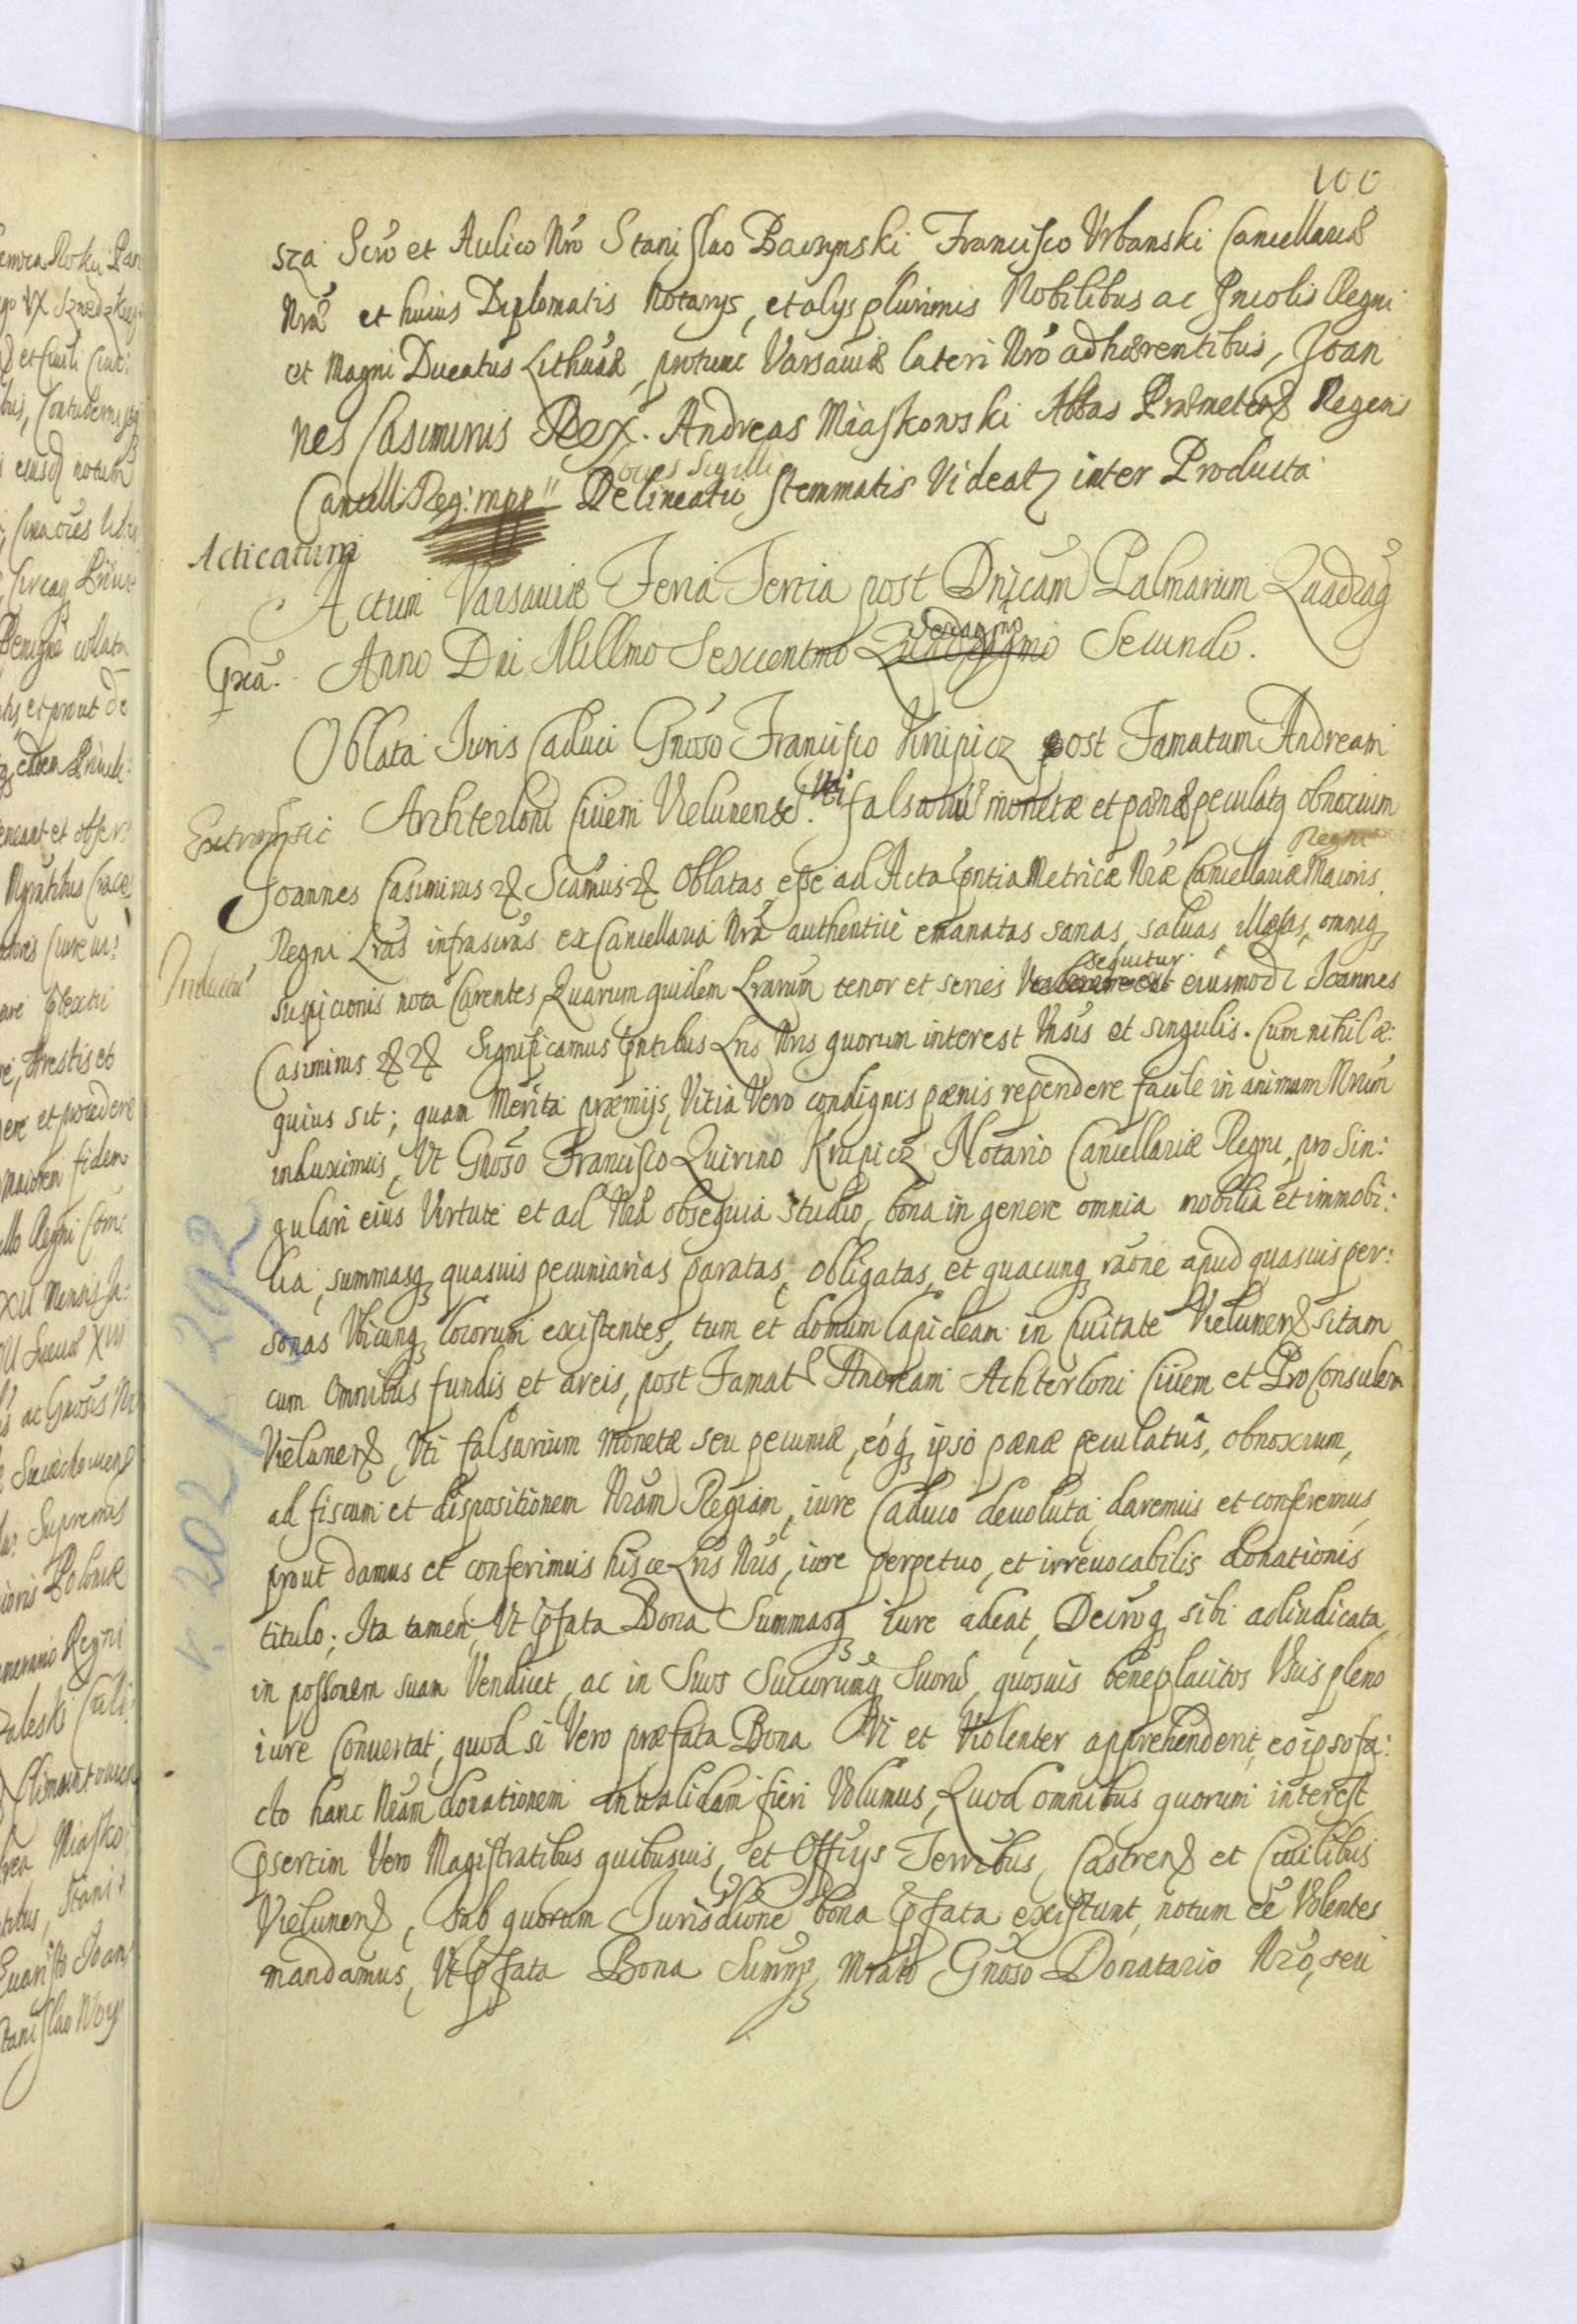 100
sza Scrō et Aulico Nrō Stanislao Baczynski, Francisco Urbanski Cancellariæ
Nræ et huius Diplomatis Notarys, et alys plurimis Nobilibus ac Incolis Regni
et Magni Ducatus Lithuaæ, protunc Varsaviæ lateri Nrō adhærentibus, Joan
nes Casimirus Rex. Andreas Miaskowski Abbas Præmeteñ Regens
Cancell: Reg: mpp" Locus Sigilli Delineatio stemmatis Videatz inter Producta
Acticatum
Actum Varsaviæ Feria Tertia post Dnicam Palmarum Quadrag
Anno Dni Millmo Sexcentmo Sexagmo Secundo.
Oblata Juris Caduci Gnōso Francisco Krupicz post Famatum Andream
Achterloni Civem Vielunensē. Uti falsariū monetæ et pænæ peculatq obnoxium
Extrahsit
Joannes Casimirus &c Scamus &c Oblatas esse ad Acta pntia Metricæ Nræ Cancellariæ Maioris
Regni
Regni Lrās infrascrās ex Cancellaria Nrā authentice emanatas sanas, salvas, illæsas, omniq
Inductū
suspicionis nota carentes, Quarum quidem Lrarum tenor et series sequitur eiusmodi Joannes
Casimirus &c &c Significamus pntibus Lris Nris quorum interest Vnsis et singulis. Cum nihil æ:
quius sit; quam Merita præmijs, Vitia Vero condignis pænis rependere facile in animum Nrum
induximus, Ut Gnōso Francisco Quirino Krupicz Notario Cancellariæ Regni, pro sin:
gulari eius Virtute et ad Nrā obsequia studio, bona in genere omnia mobilia et immobi:
lia, summasq quasvis pecuniarias paratas, obligatas, et quacunq raōne apud quasvis per:
sonas Ubicunq locorum existentes, tum et domum lapideam in Civitate Vieluneñ sitam
cum Omnibus fundis et areis, post Famatē Andream Achterloni Civem et ProConsulem
Vieluneñ, Uti falsarium Monetæ seu pecuniæ, eōq ipso pænæ peculatus, obnoxium,
ad fiscum et dispositionem Nram Regiam, iure Caduco devoluta, daremus et conferemus,
prout damus et conferimus hisce Lris Nris, iure perpetuo, et irrevocabilis donationis
titulo; Ita tamen, Ut pfata Bona Summasq iure adeat, Decrōq sibi adiudicata,
in possonem suam Vendicet, ac in Suos Succorumq Suorū, quosvis beneplacitos Usus pleno
iure Convertat, quod si Vero præfata Bona Vi et Violenter apprehenderit, eo ipso fa:
cto hanc Nram donationem invalidam fieri Volumus, Quod omnibus quorum interest
psertim Vero Magistratibus quibusvis, et Officys Terribus, Castreñ et Civilibus
Vieluneñ, sub quorum Jurisdione bona pfata existunt, notum ee Volentes
mandamus, Ut pfata Bona Summasq Mrato Gnōso Donatario Nrō, seu
r. 202/292